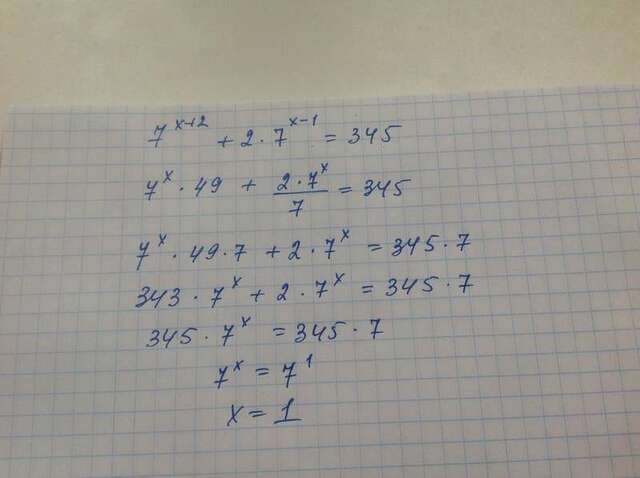 7^{x+2} + 2 · 7^{x-1} = 345
7^x · 49 + \frac{2 · 7^x}{7} = 345
7^x · 49 · 7 + 2 · 7^x = 345 · 7
343 · 7^x + 2 · 7^x = 345 · 7
345 · 7^x = 345 · 7
7^x = 7^1
x = 1